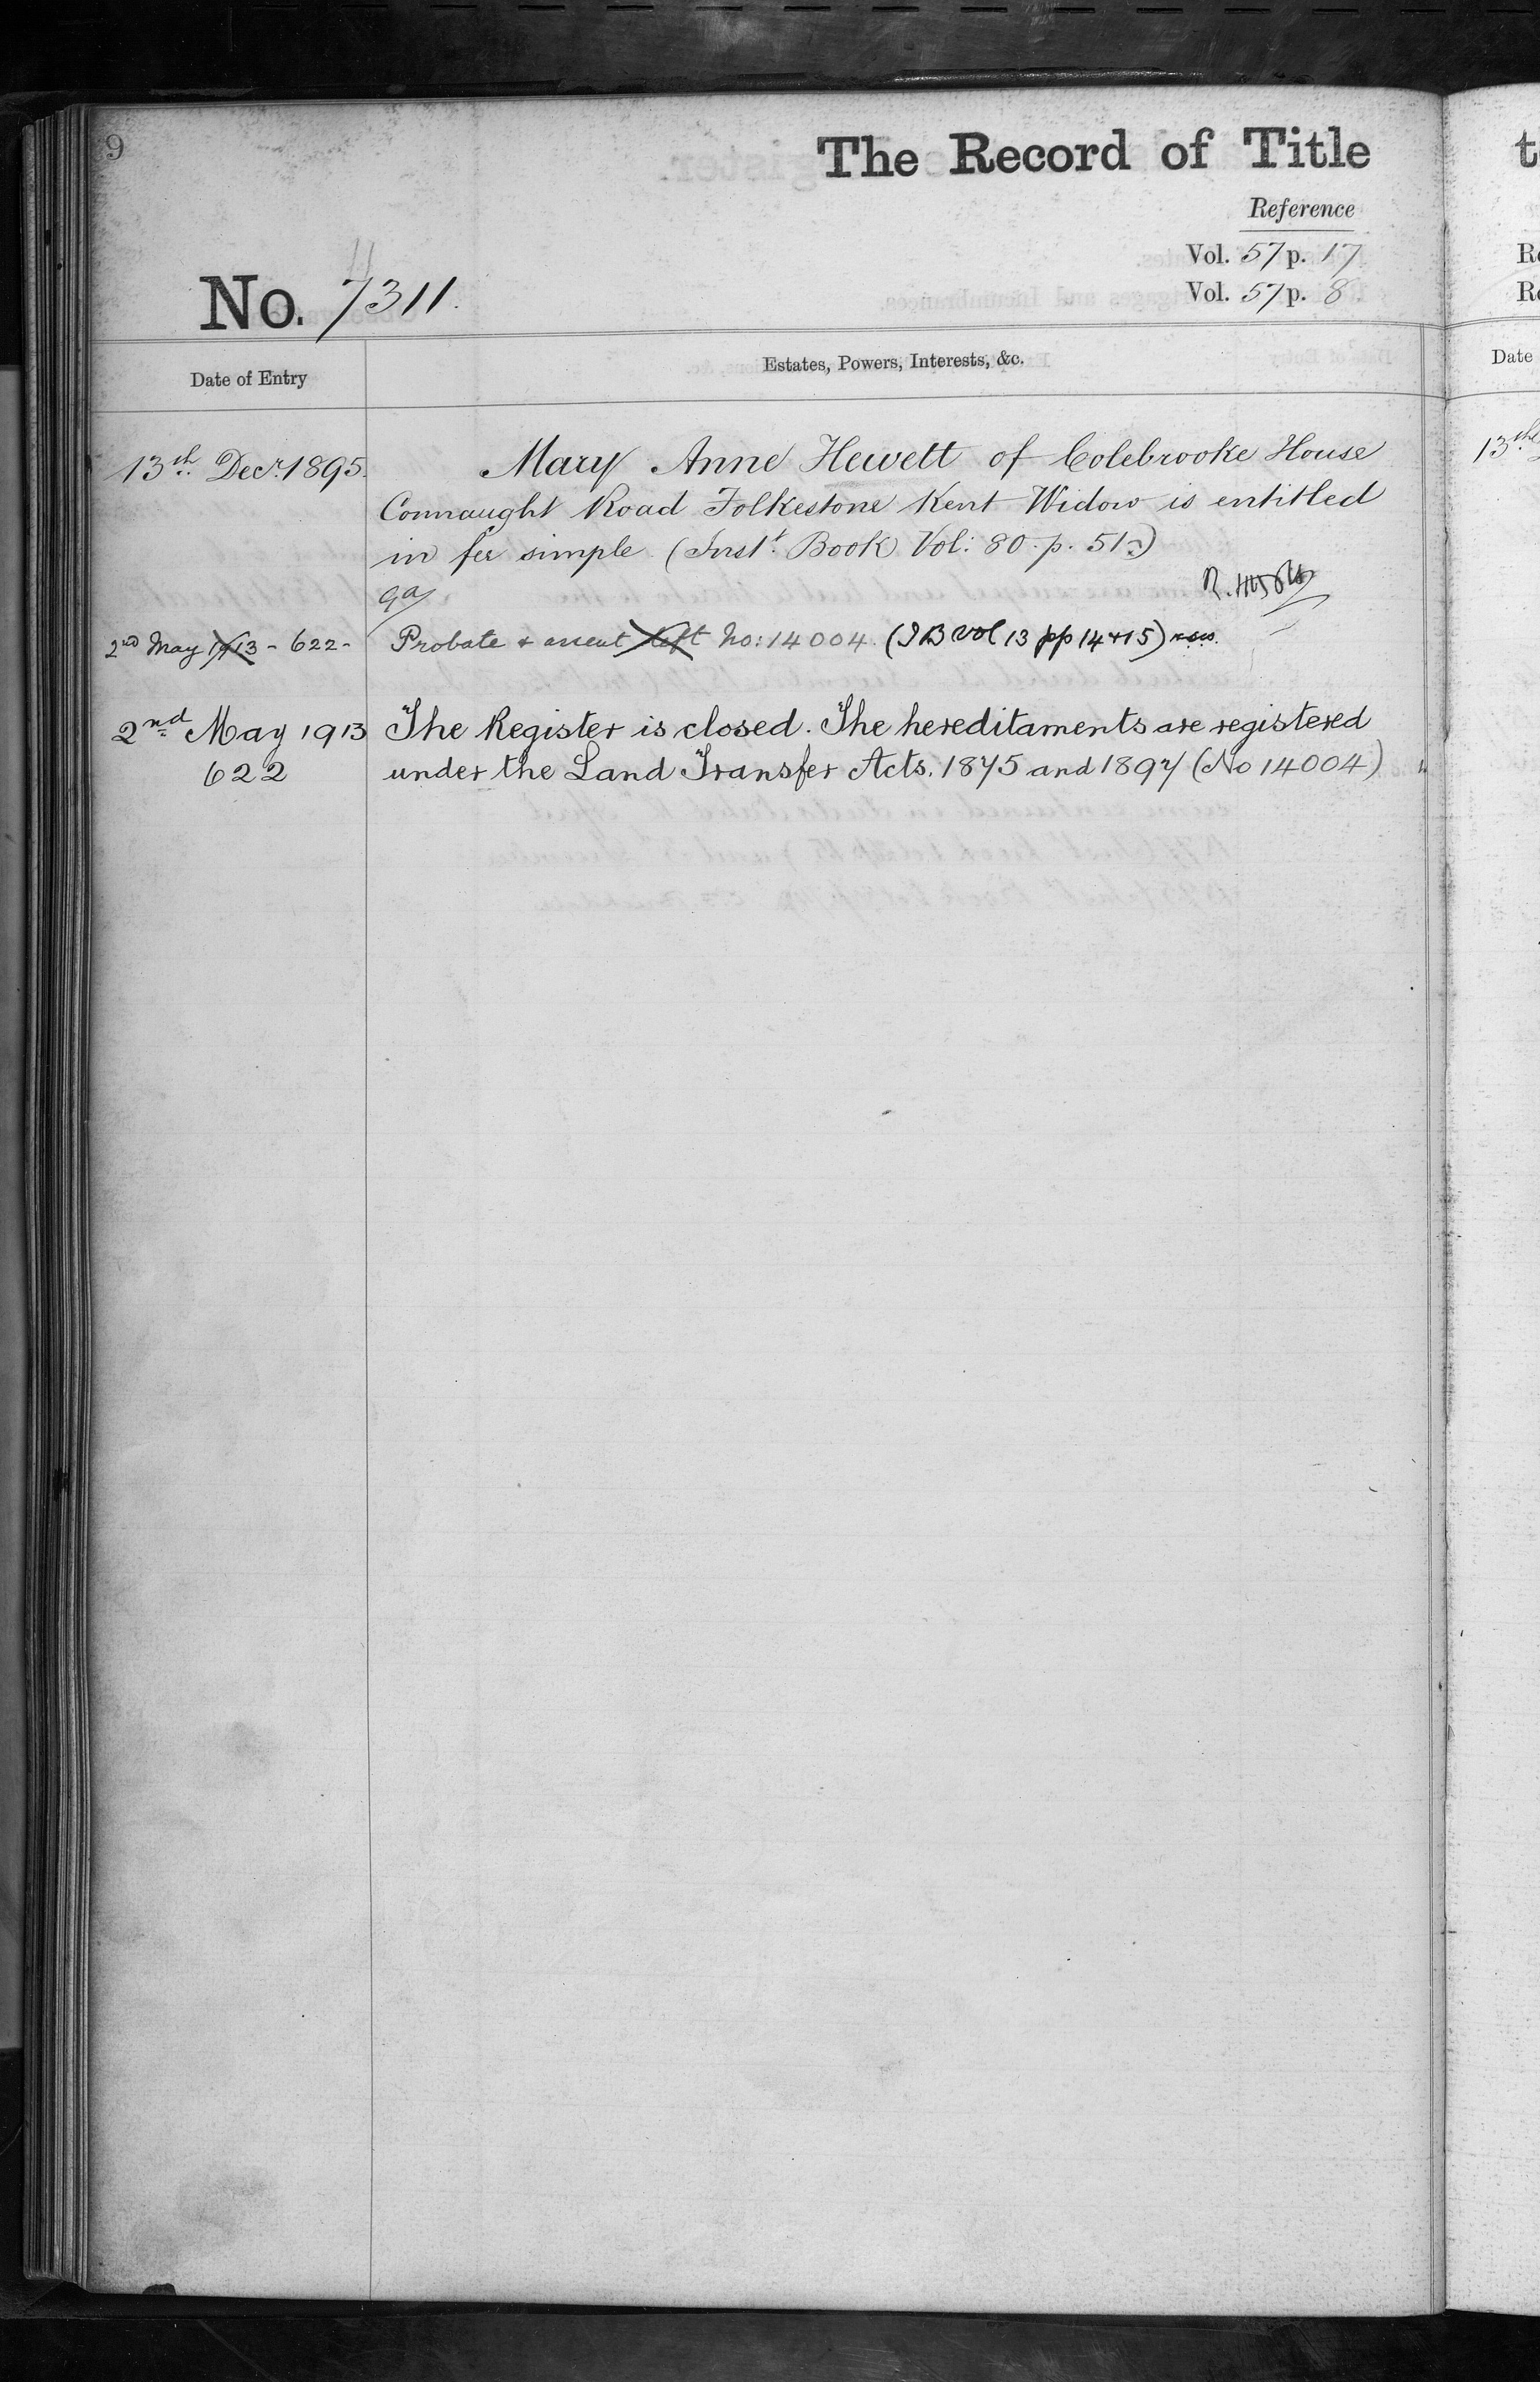 9
The Record of Title
Reference
Vol. 57 p. 17
Vol. 57 p. 8
No. 7311.
Date of Entry
Estates, Powers, Interests, &c.
13th Decr. 1895.
Mary Anne Hewett of Colebrooke House
Connaught Road Folkestone Kent Widow is entitled
in fee simple. (Inst. Book Vol: 80. p. 51.)
2nd May 1913 - 622 -
Probate & assent left No: 14004. (I B vol 13 pp 14 & 15)
2nd May 1913
622
The Register is closed. The hereditaments are registered
under the Land Transfer Acts. 1875 and 1897 (No 14004)
t
Re
Re
Date
13th